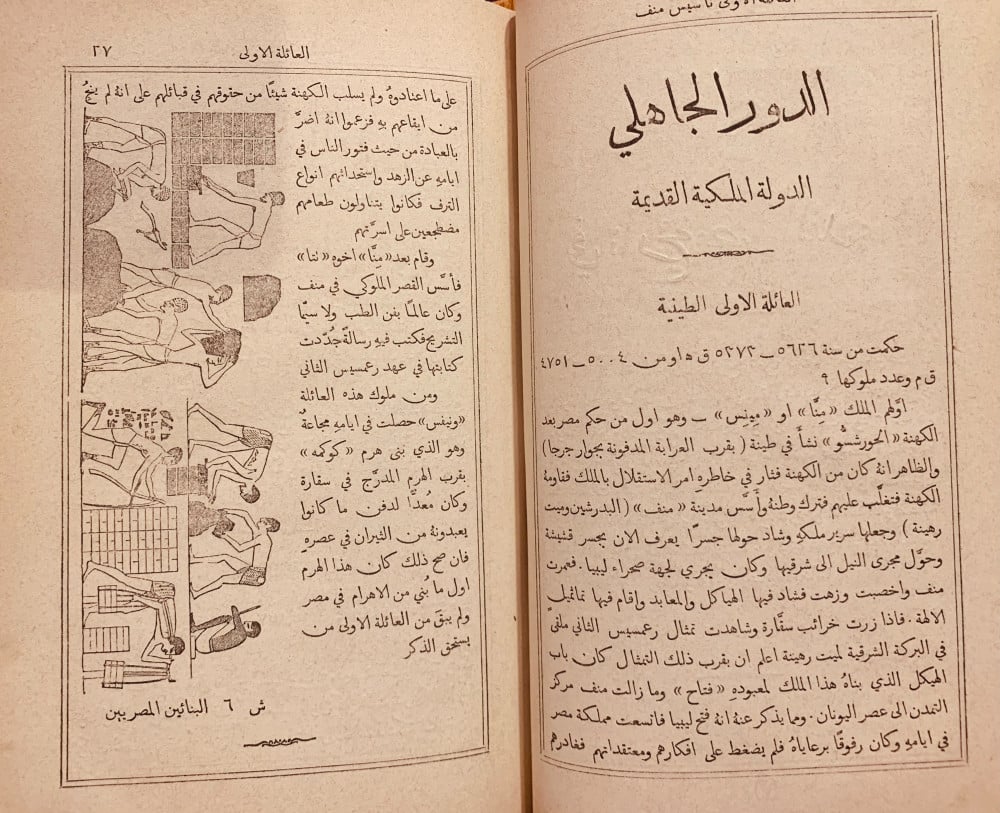 العائلة الاولى تأسيس منف
الدور الجاهلي
الدولة الملكية القديمة
العائلة الاولى الطينية
حكمت من سنة ٥٦٢٦ – ٥٣٧٣ ق ه او من ٥٠٠٤ – ٤٧٥١
ق م وعدد ملوكها ؟
اوَّلهم الملك «مِنَّا» او «مِينِس» – وهو اول من حكم مصر بعد
الكهنة «الحورشسُّو» نشأَ في طينة (بقرب العرابة المدفونة بجوار جرجا)
والظاهر انهُ كان من الكهنة فثار في خاطرهِ امر الاستقلال بالملك فقاومهُ
الكهنة فتغلَّب عليهم فترك وطنهُ وأَسَّس مدينة «منف» (البدرشين وميت
رهينة) وجعلها سرير ملكهِ وشاد حولها جسرًا يعرف الان بجسر قشيشة
وحوَّل مجرى النيل الى شرقيها وكان يجري لجهة صحراء ليبيا. فعمرت
منف واخصبت وزهت فشاد فيها الهياكل والمعابد واقام فيها تماثيل
الالهة. فاذا زرت خرائب سقَّارة وشاهدت تمثال رعمسيس الثاني ملقىً
في البركة الشرقية لميت رهينة اعلم ان بقرب ذلك التمثال كان باب
الهيكل الذي بناهُ هذا الملك لمعبودهِ «فتاح» وما زالت منف مركز
التمدن الى عصر اليونان. ومما يذكر عنهُ انهُ فتح ليبيا فاتسعت مملكة مصر
في ايامهِ وكان رفوقًا برعاياهُ فلم يضغط على افكارهم ومعتقداتهم فغادرهم
العائلة الاولى
٢٧
على ما اعتادوهُ ولم يسلب الكهنة شيئًا من حقوقهم في قبائلهم على انهُ لم ينجُ
من ايقاعهم بهِ فزعموا انهُ اضرَّ
بالعبادة من حيث فتور الناس في
ايامهِ عن الزهد واستحداثهم انواع
الترف فكانوا يتناولون طعامهم
مضطجعين على اسرَّتهم
وقام بعد «مِنَّا» اخوه «تتا»
فأَسَّس القصر الملوكي في منف
وكان عالمًا بفن الطب ولا سيَّما
التشريح فكتب فيهِ رسالةً جُدّدت
كتابتها في عهد رعمسيس الثاني
ومن ملوك هذه العائلة
«ونيفس» حصلت في ايامهِ مجاعةٌ
وهو الذي بنى هرم «كوكمه»
بقرب الهرم المدرَّج في سقارة
وكان مُعدًّا لدفن ما كانوا
يعبدونهُ من الثيران في عصرهِ
فان صح ذلك كان هذا الهرم
اول ما بُني من الاهرام في مصر
ولم يبقَ من العائلة الاولى من
يستحق الذكر
ش ٦ البنائين المصريين